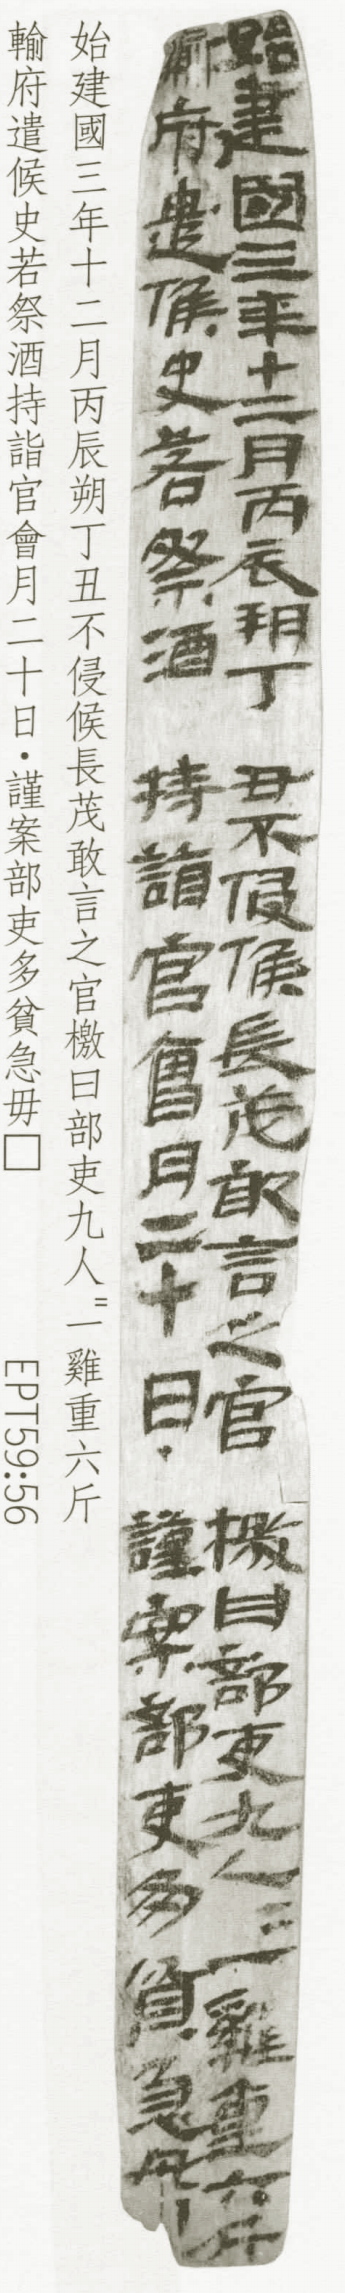 始建國三年十二月丙辰朔丁丑不侵候長茂敢言之官檄曰部吏九人〓一雞重六斤
輸府遣候史若祭酒持詣官會月二十日·謹案部吏多貧急毋
始建國三年十二月丙辰朔丁丑不侵候長茂敢言之官檄曰部吏九人〓一雞重六斤
輸府遣候史若祭酒持詣官會月二十日·謹案部吏多貧急毋□
EPT59:56